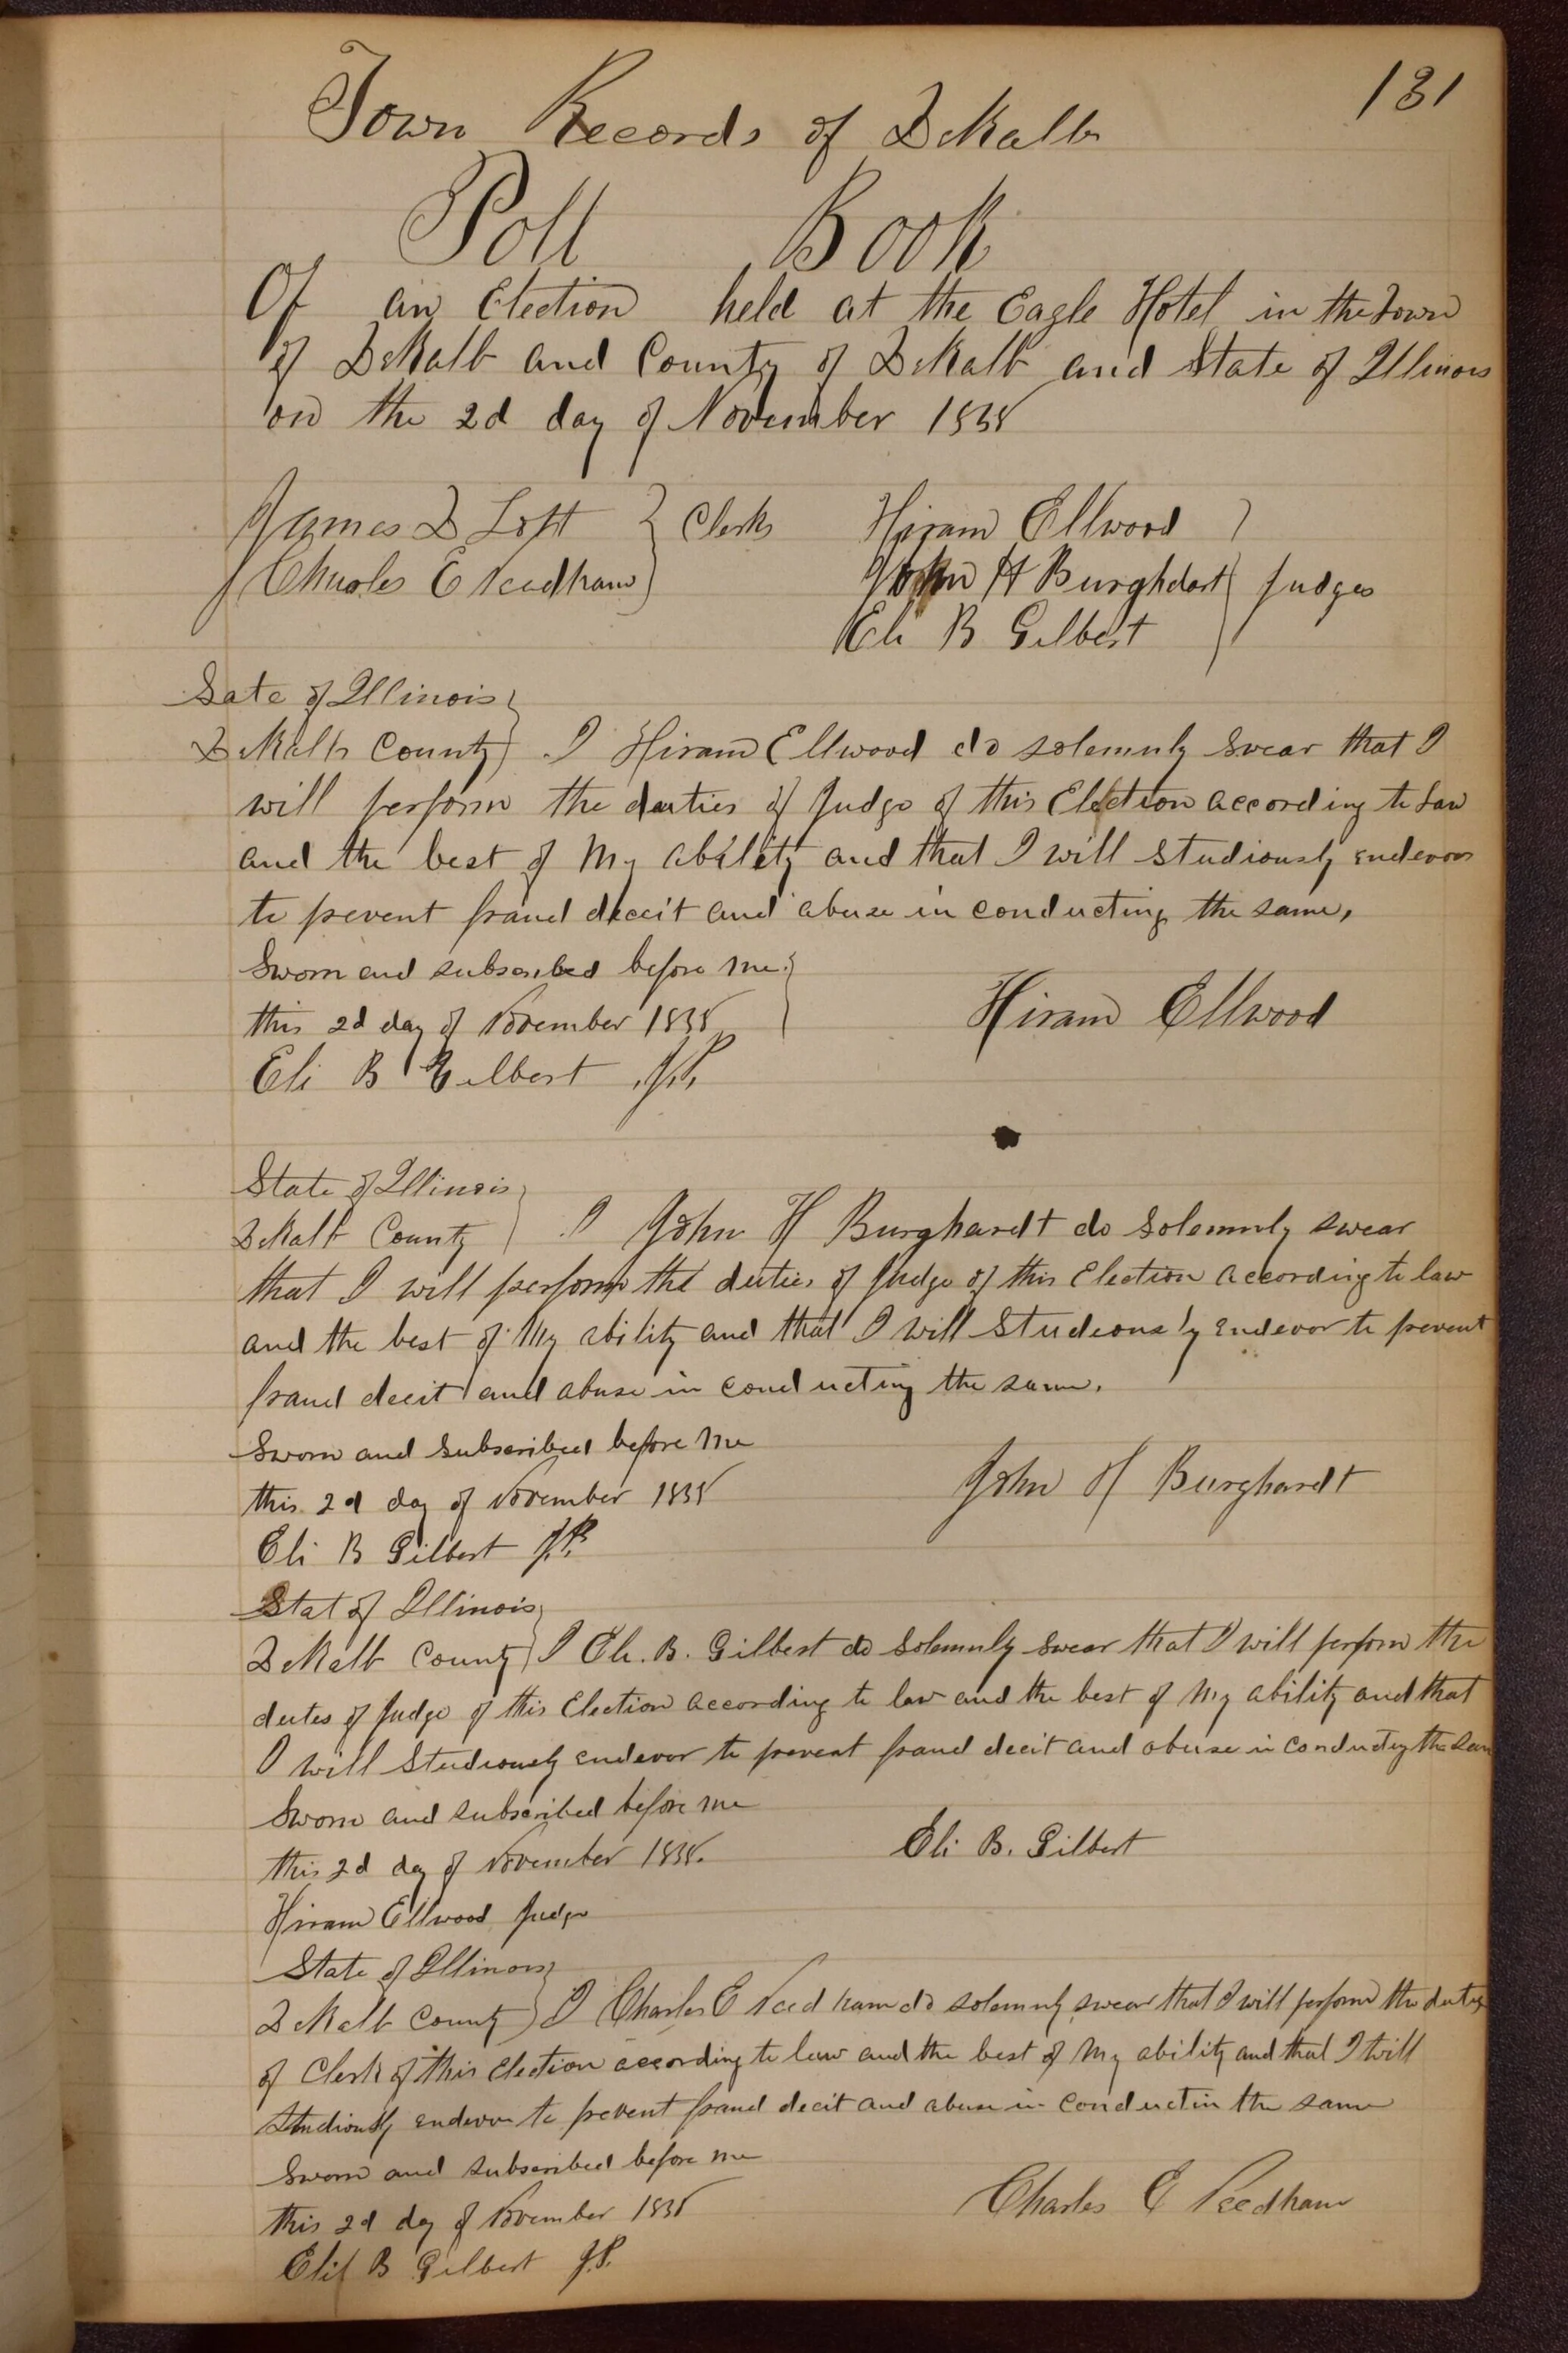 131
Town Records of DeKalb
Poll Book
Of an Election held at the Eagle Hotel in the Town
of DeKalb and County of DeKalb and State of Illinois
on the 2d day of November 1858
James D Lott } Clerks Hiram Ellwood }
Charles E Needham } John H Burghdart } Judges
Eli B Gilbert }
Sate of Illinois }
DeKalb County } I Hiram Ellwood do solemnly swear that I
will perform the duties of Judge of this Election according to Law
and the best of My ability and that I will studiously endevor
to prevent fraud deceit and abuse in conducting the same,
Sworn and subscribed before me }
this 2d day of November 1858 Hiram Ellwood
Eli B Gilbert J.P.
State of Illinois }
DeKalb County } I John H Burghardt do solemnly swear
that I will perform the duties of Judge of this Election according to law
and the best of My ability and that I will Studiously endevor to prevent
fraud decit and abuse in conducting the same.
Sworn and subscribed before me
this 2d day of November 1858 John H Burghardt
Eli B Gilbert J.P.
Stat of Illinois }
DeKalb County } I Eli. B. Gilbert do solemnly swear that I will perform the
duties of Judge of this Election according to law and the best of My ability and that
I will studiously endevor to prevent fraud decit and abuse in conducting the
Sworn and subscribed before me
this 2d day of November 1858. Eli B. Gilbert
Hiram Ellwood Judge
State of Illinois }
DeKalb County } I Charles E Needham do solemnly swear that I will perform the duties
of Clerk of this Election according to law and the best of My ability and that I will
studiously endevor to prevent fraud decit and abuse in conductin the same
Sworn and subscribed before me
this 2d day of November 1858 Charles E Needham
Eli B Gilbert J.P.